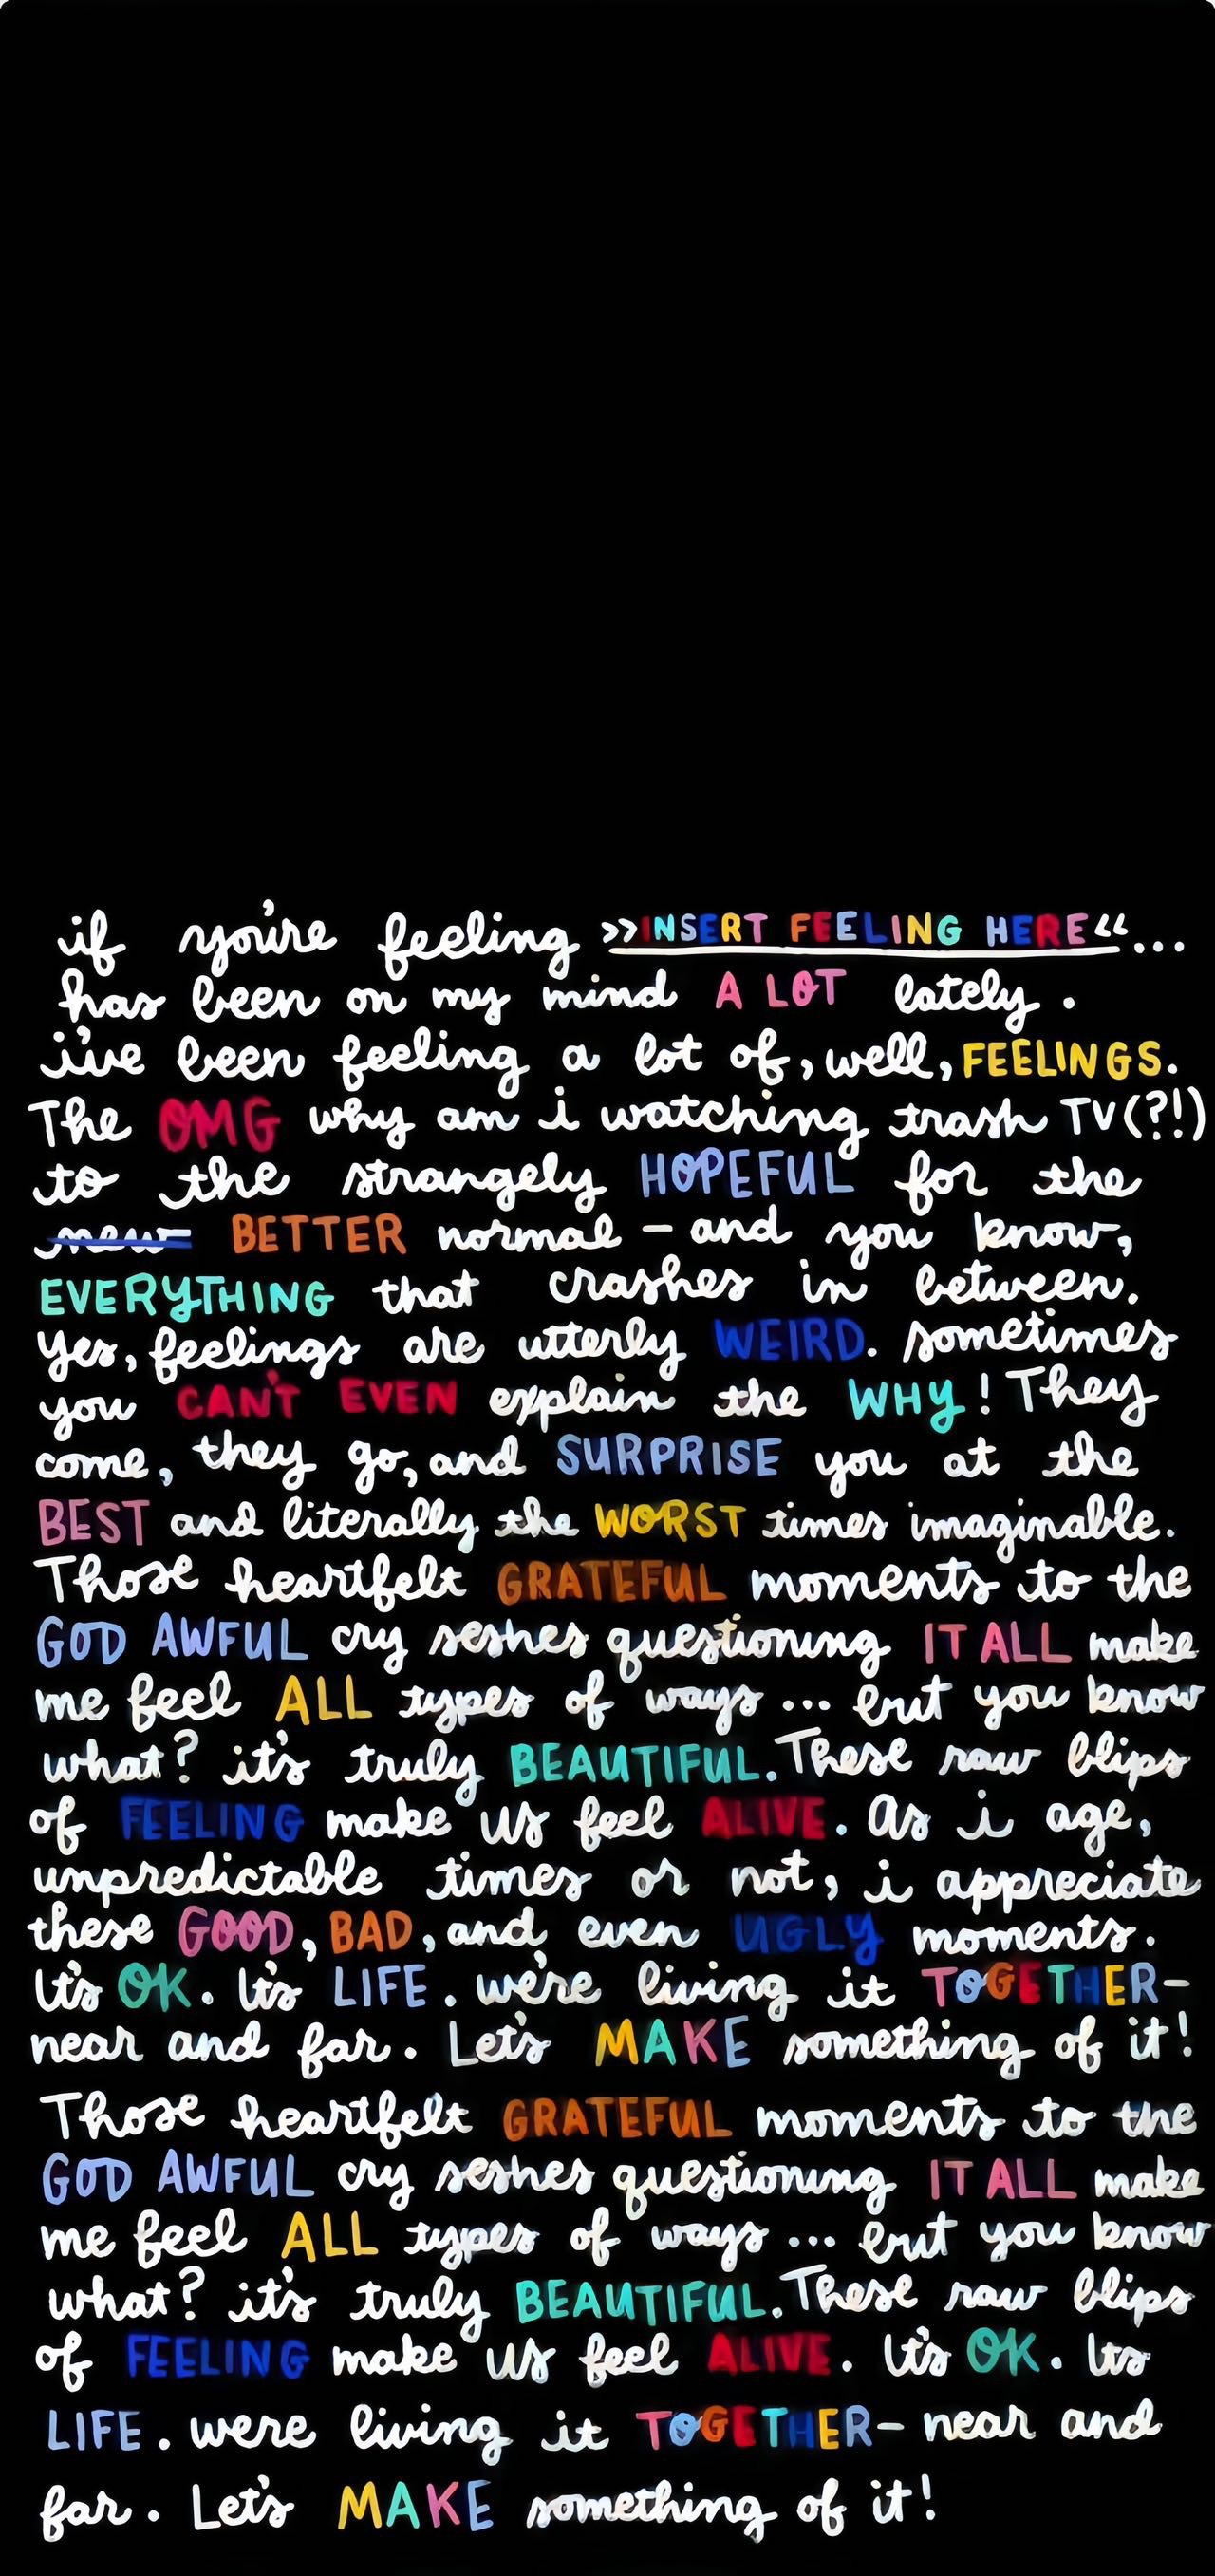 if you're feeling >>INSERT FEELING HERE<<...
has been on my mind A LOT lately.
i've been feeling a lot of, well, FEELINGS.
The OMG why am i watching trash TV(?!)
to the strangely HOPEFUL for the
new BETTER normal - and you know,
EVERYTHING that crashes in between.
Yes, feelings are utterly WEIRD. sometimes
you CAN'T EVEN explain the WHY! They
come, they go, and SURPRISE you at the
BEST and literally the WORST times imaginable.
Those heartfelt GRATEFUL moments to the
GOD AWFUL cry seshes questioning IT ALL make
me feel ALL types of ways... but you know
what? it's truly BEAUTIFUL. These raw blips
of FEELING make us feel ALIVE. As i age,
unpredictable times or not, i appreciate
these GOOD, BAD, and even UGLY moments.
It's OK. It's LIFE. we're living it TOGETHER-
near and far. Let's MAKE something of it!
Those heartfelt GRATEFUL moments to the
GOD AWFUL cry seshes questioning IT ALL make
me feel ALL types of ways... but you know
what? it's truly BEAUTIFUL. These raw blips
of FEELING make us feel ALIVE. It's OK. Its
LIFE. were living it TOGETHER- near and
far. Let's MAKE something of it!